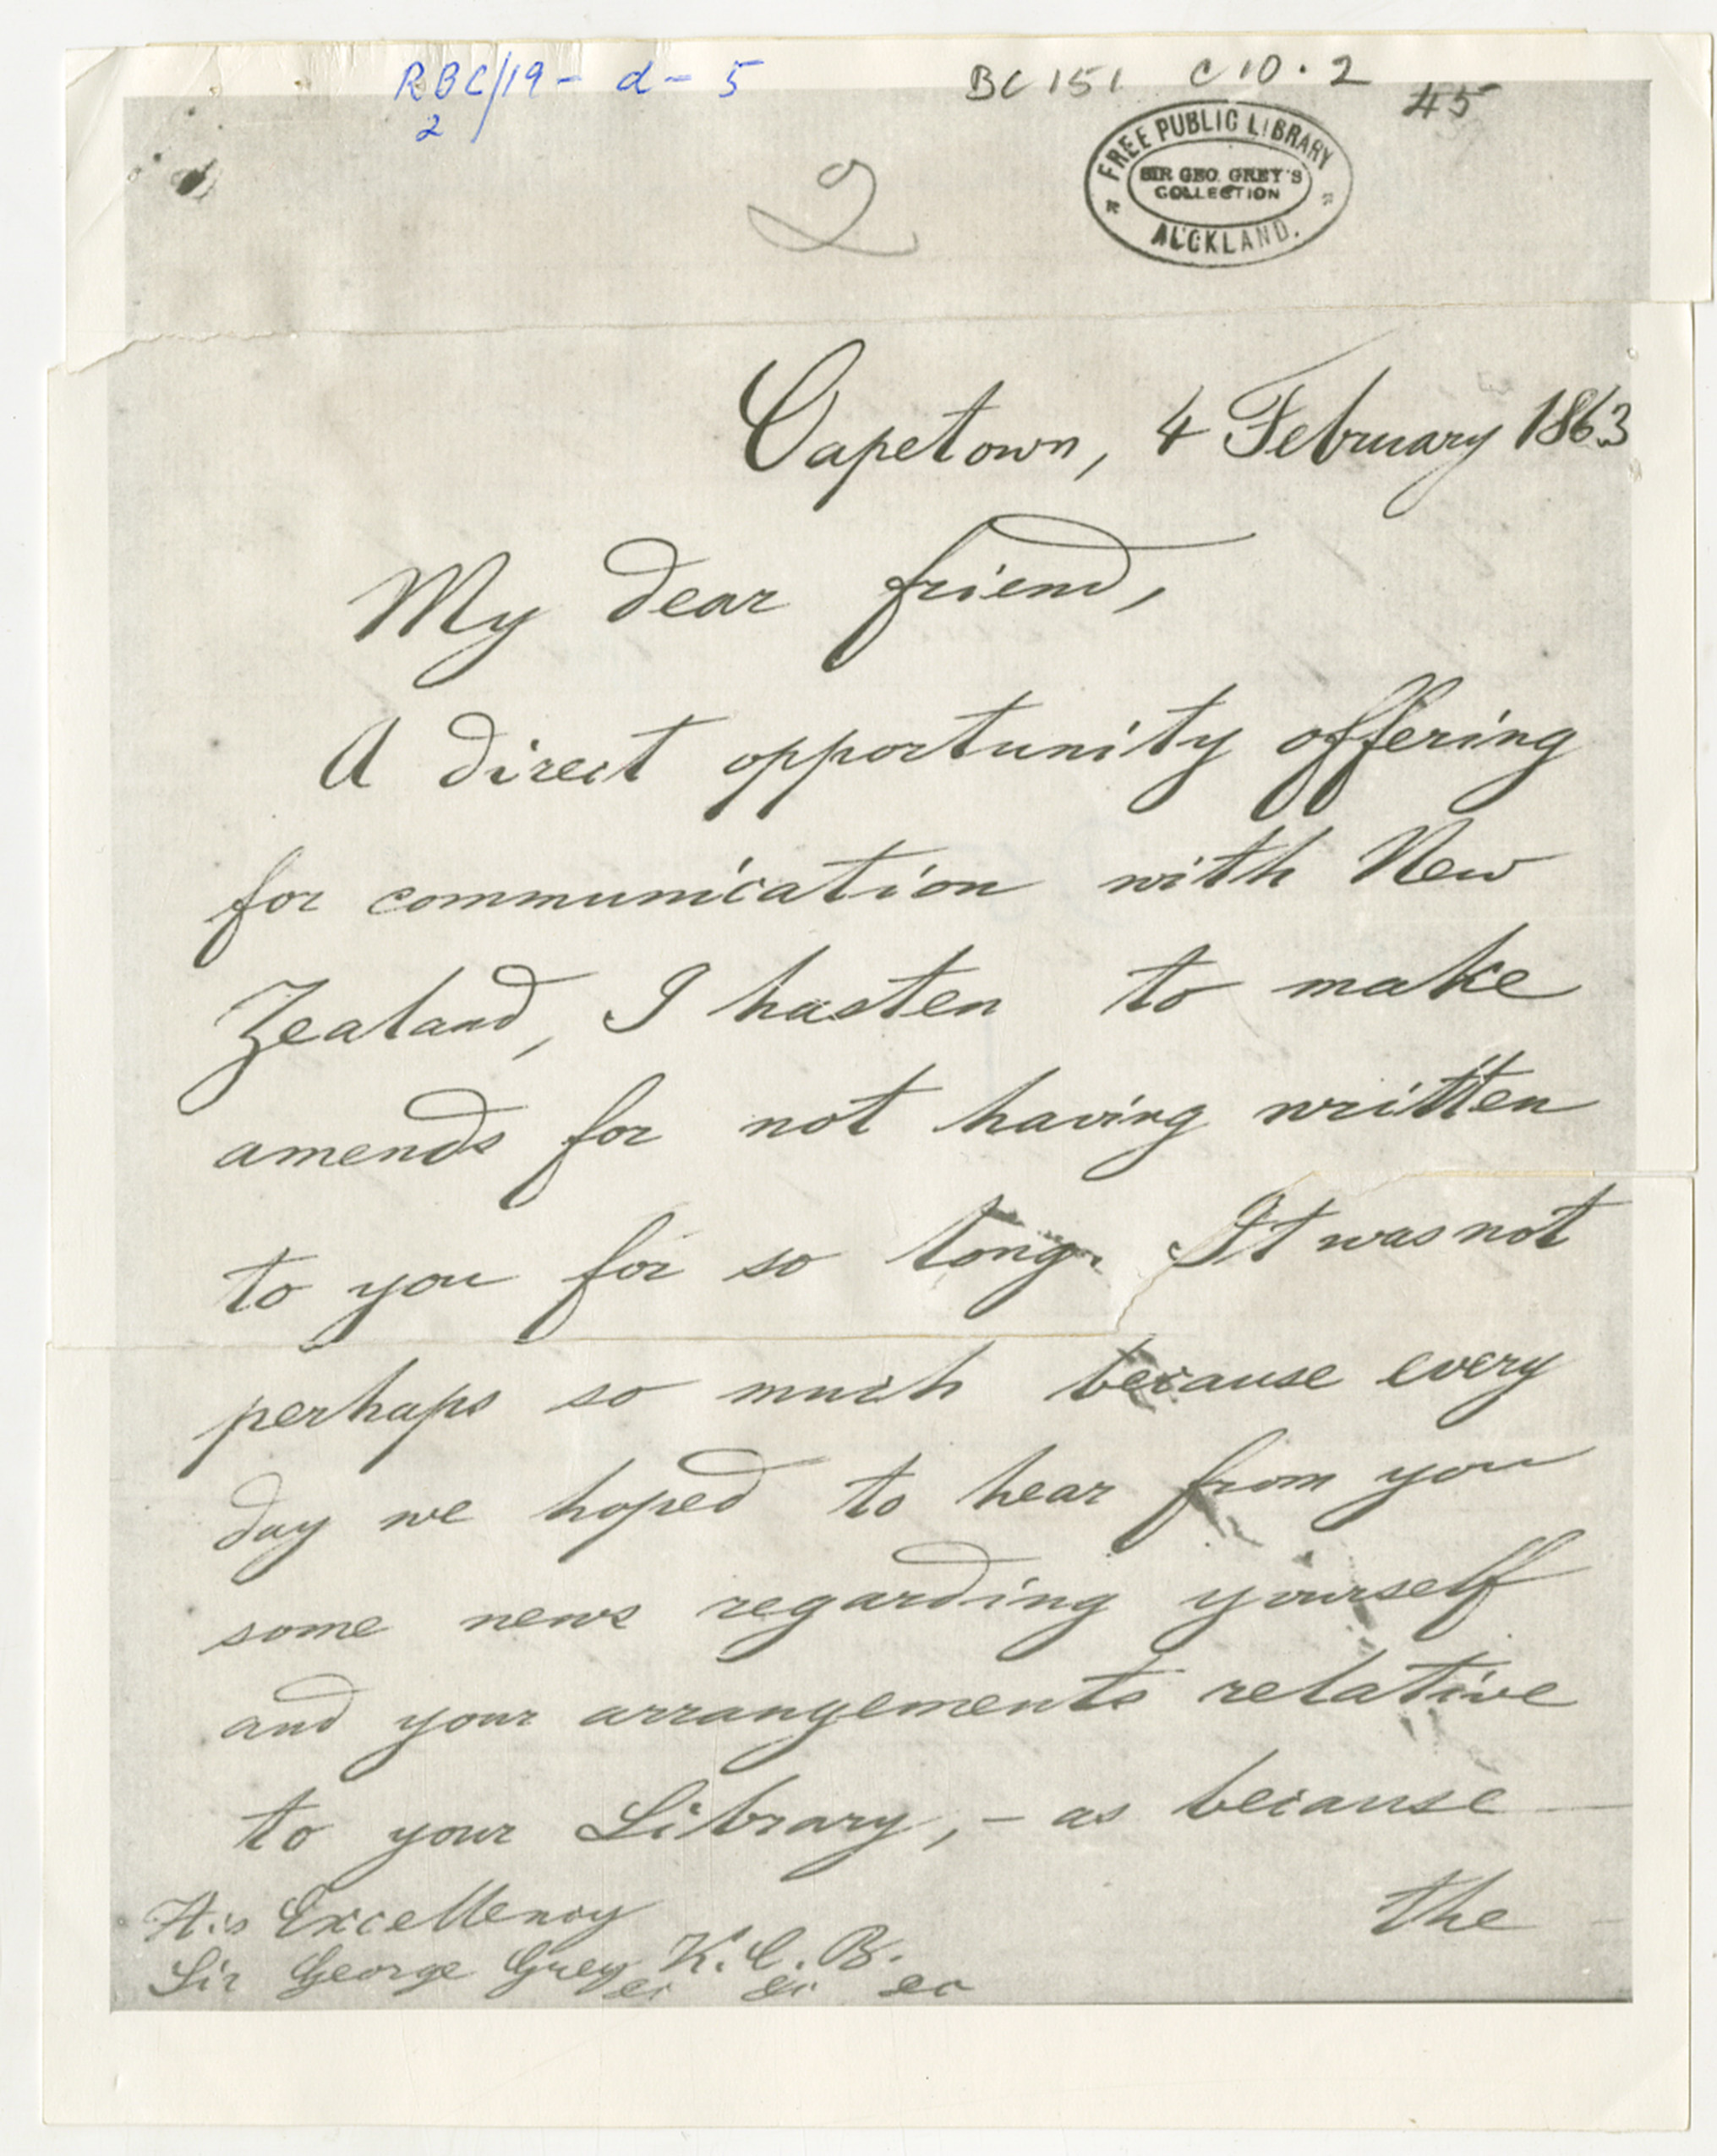 RBC/19-d-5
2
BC 151 C 10.2
45
2
FREE PUBLIC LIBRARY
SIR GEO. GREY'S
COLLECTION
AUCKLAND.
Capetown, 4 February 1863
My dear friend,
A direct opportunity offering
for communication with New
Zealand, I hasten to make
amends for not having written
to you for so long. It was not
perhaps so much because every
day we hoped to hear from you
some news regarding yourself
and your arrangements relative
to your Library, – as because
the
His Excellency
Sir George Grey K.C.B.
&c &c &c